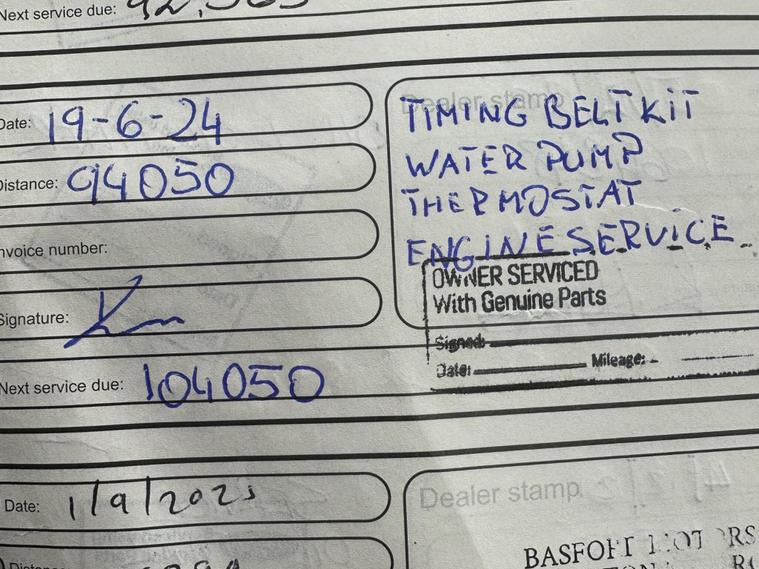 Next service due: 92,
Date: 19-6-24
Distance: 94050
Invoice number:
Signature:
Next service due: 104050
Dealer stamp
TIMING BELT KIT
WATER PUMP
THERMOSTAT
ENGINE SERVICE
OWNER SERVICED
With Genuine Parts
Signed:
Date: Mileage:
Date: 1/9/2025
Dealer stamp